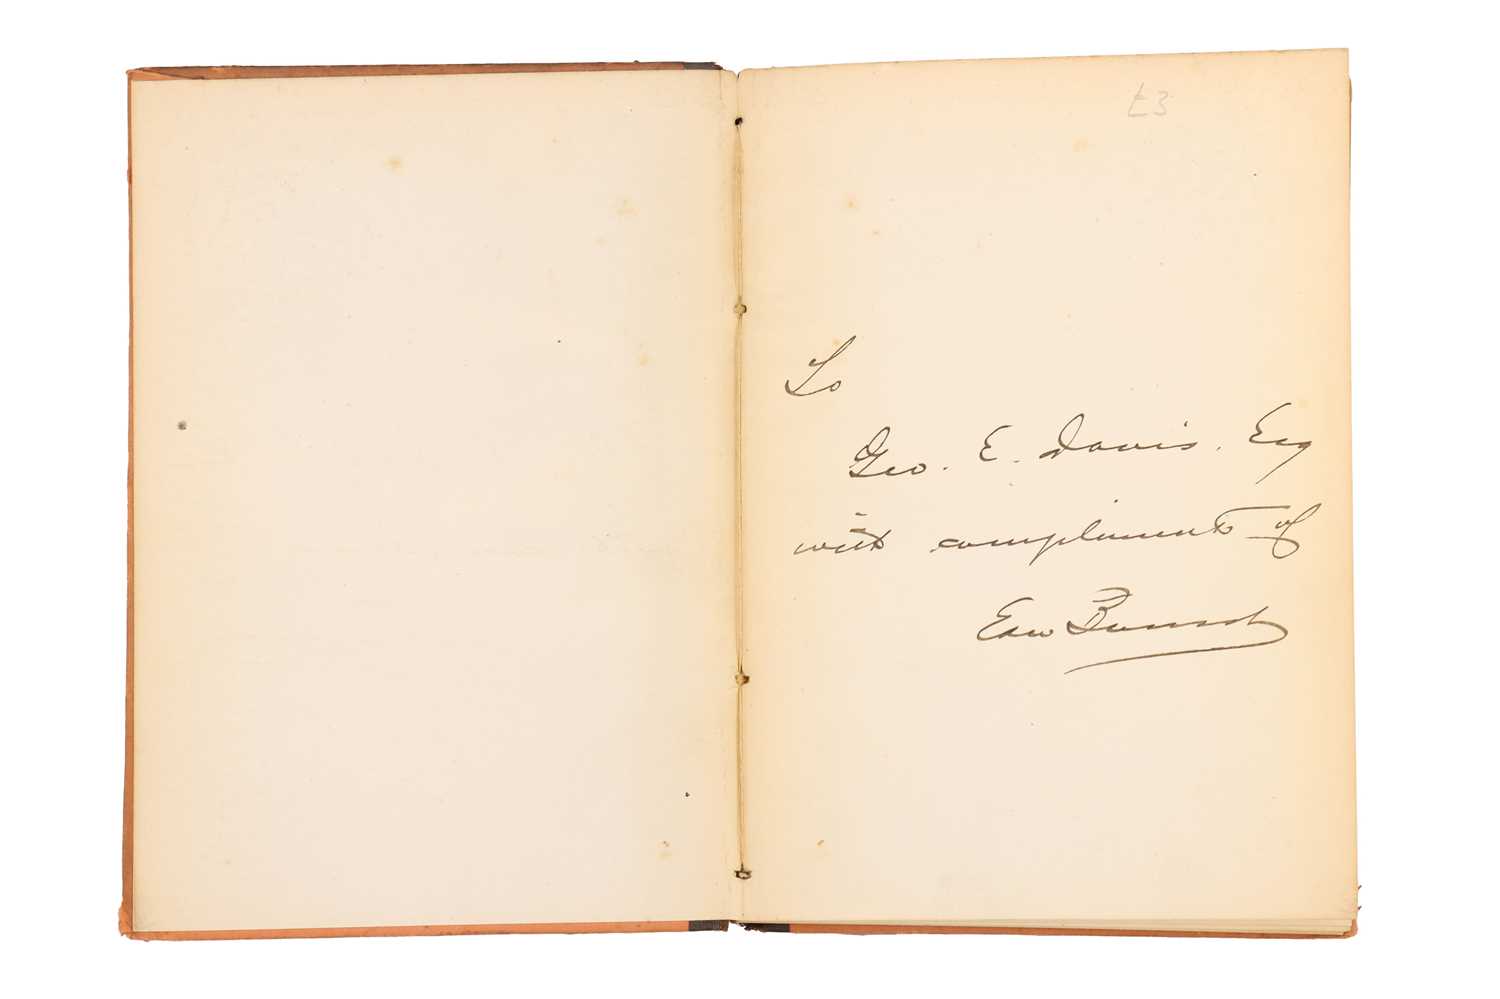 £3
To
Geo. E. Davis. Esq
with compliments of
Edw Bausch